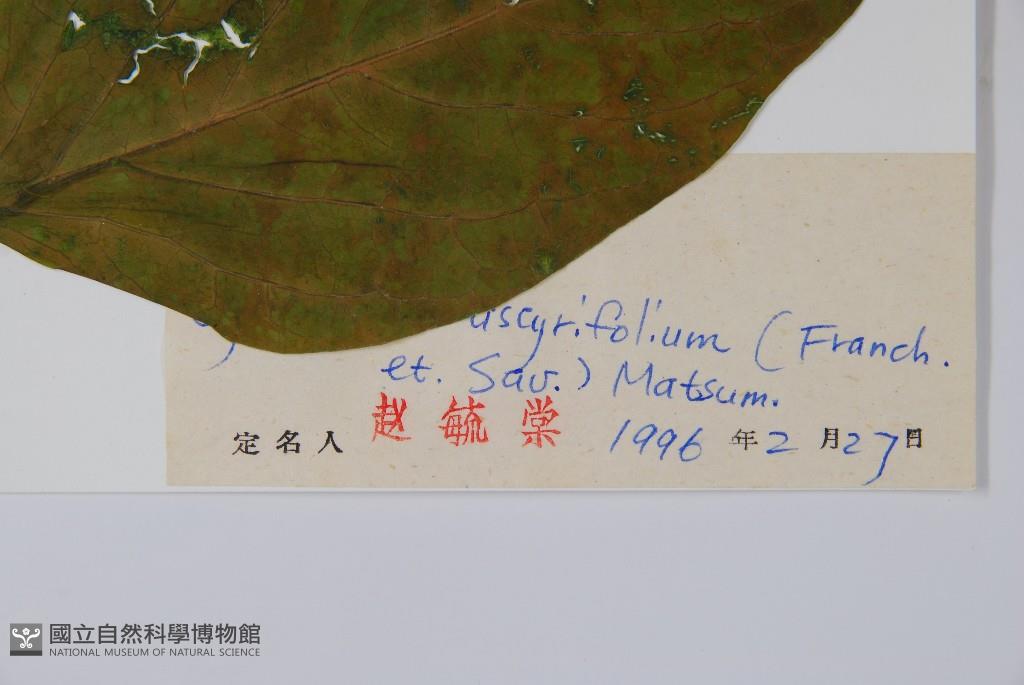 uscyrifolium (Franch.
et. Sav.) Matsum.
定名人 赵毓棠 1996 年 2 月 27 日
國立自然科學博物館
NATIONAL MUSEUM OF NATURAL SCIENCE